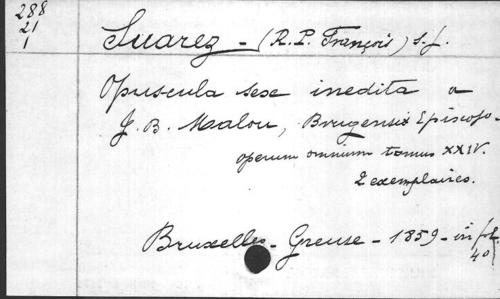 288
21
1
Suarez - (R. P. François) s.j.
Opuscula sex inedita a
J. B. Malou, Brugensis Episcopo -
operum omnium tomus XXIV.
2 exemplaires.
Bruxelles - Greuse - 1859 - in fol.
40